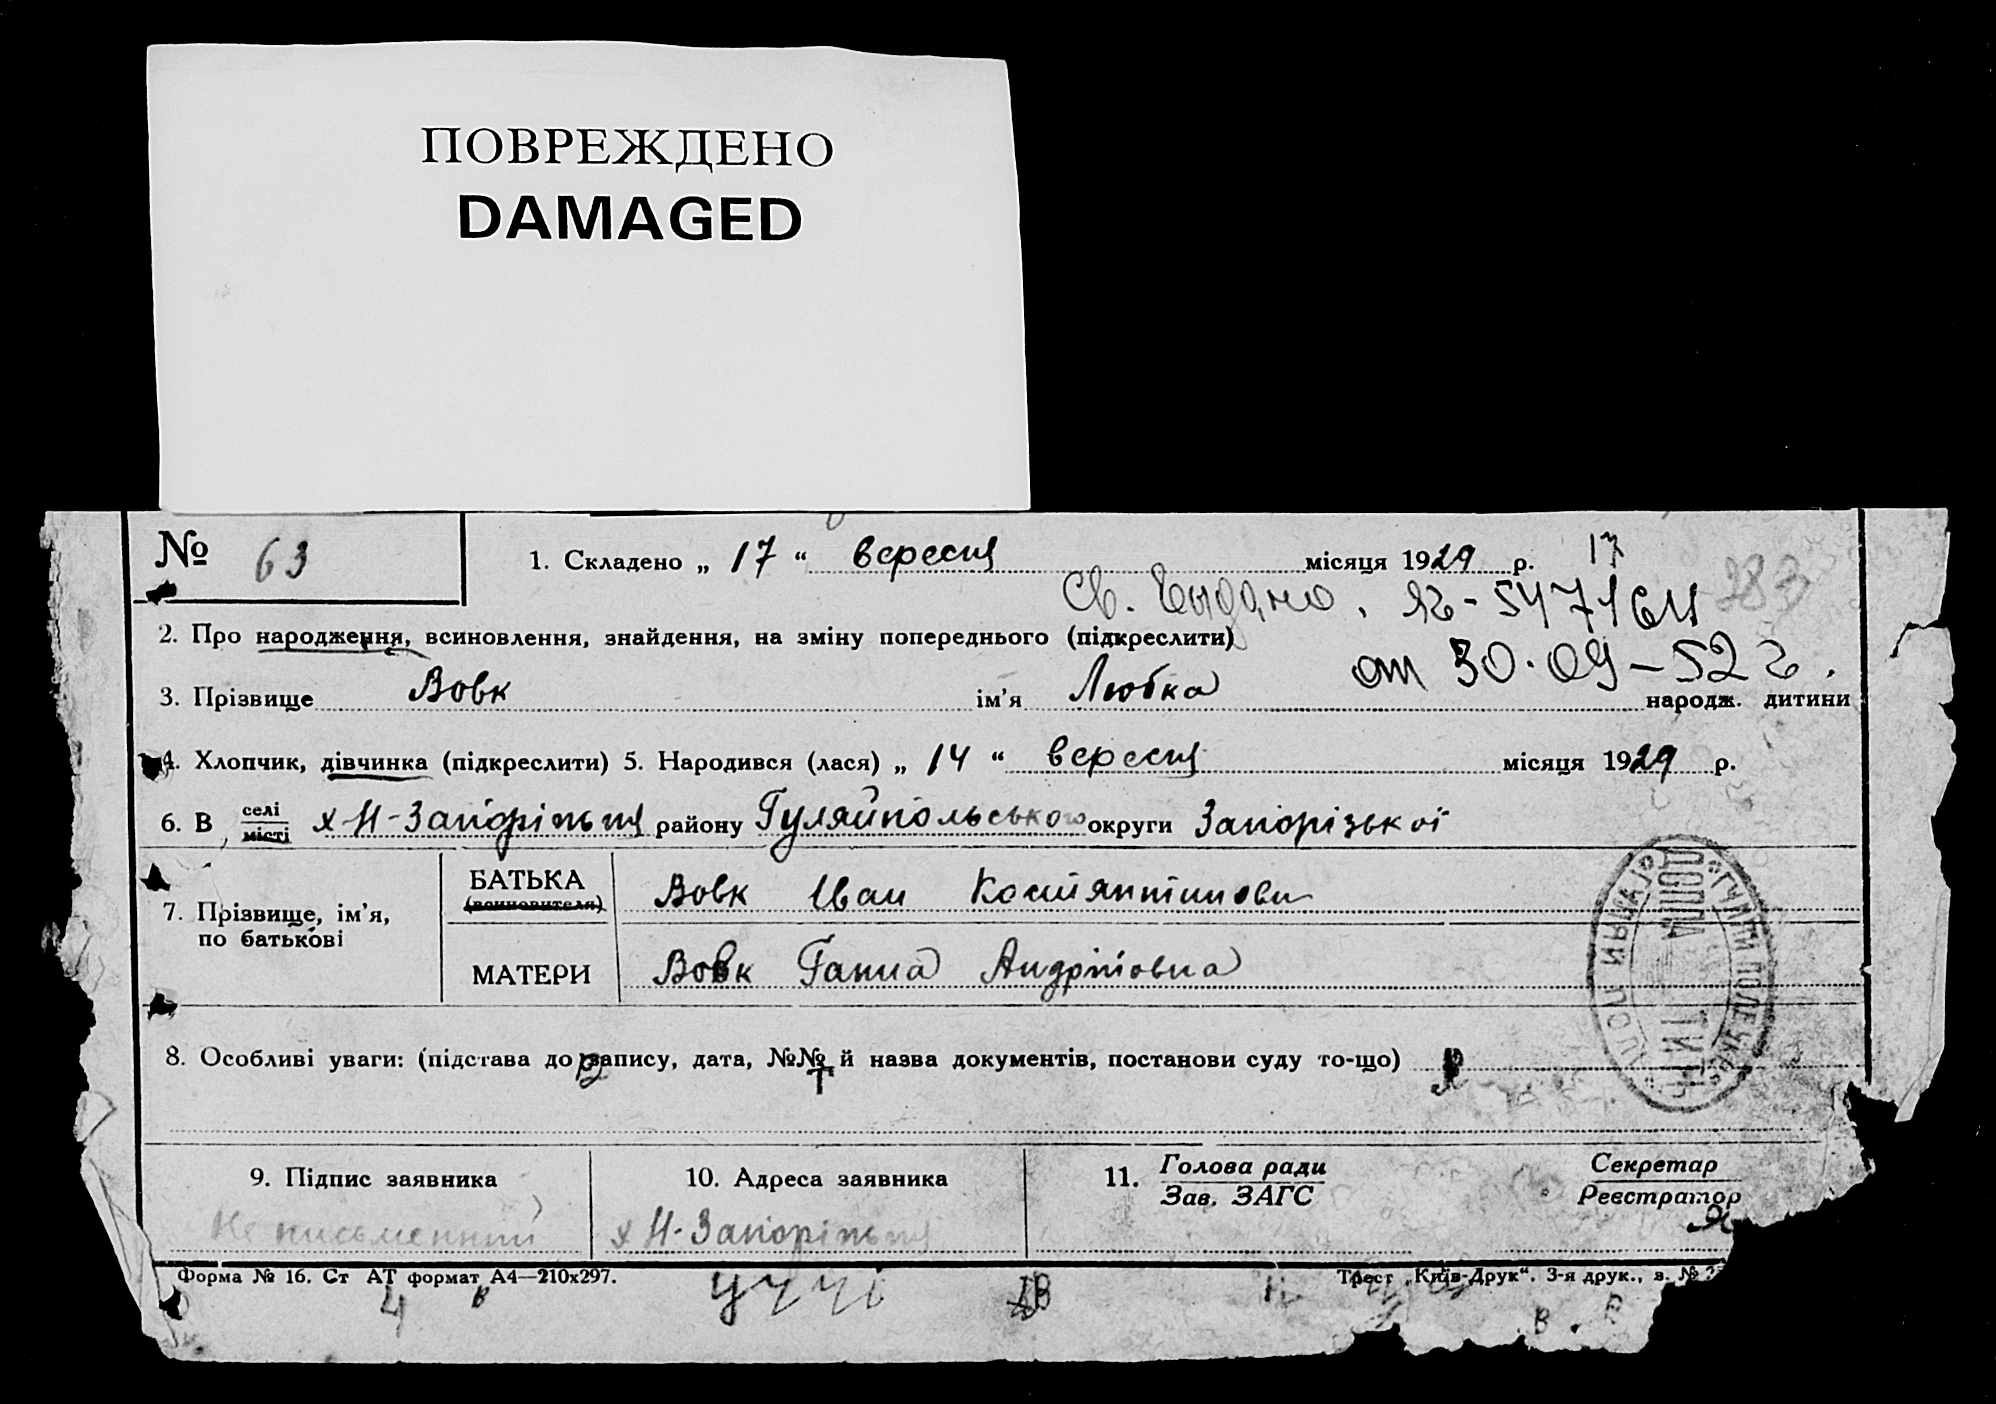 ПОВРЕЖДЕНО
DAMAGED
№ 63
1. Складено „ 17 “ вересня місяця 1929 р. 17
Св. выдано. ЯБ-547164 283
2. Про народження, всиновлення, знайдення, на зміну попереднього (підкреслити)
от 30.09-52 г.
3. Прізвище Вовк ім’я Любка народж. дитини
4. Хлопчик, дівчинка (підкреслити) 5. Народився (лася) „ 14 “ вересня місяця 1929 р.
6. В селі місті х-Н-Запоріжжя району Гуляйпольського округи Запорізької
7. Прізвище, ім’я, по батькові
БАТЬКА (всиновителя) Вовк Іван Костянтинови
МАТЕРИ Вовк Ганна Андріївна
8. Особливі уваги: (підстава до запису, дата, №№ й назва документів, постанови суду то-що)
9. Підпис заявника
10. Адреса заявника
11. Голова ради
Зав. ЗАГС
Секретар
Реєстратор
Не письменний
х Н-Запоріжжя
Форма № 16. Ст АТ формат А4—210х297.
Трест „Київ-Друк“. 3-я друк., з. №